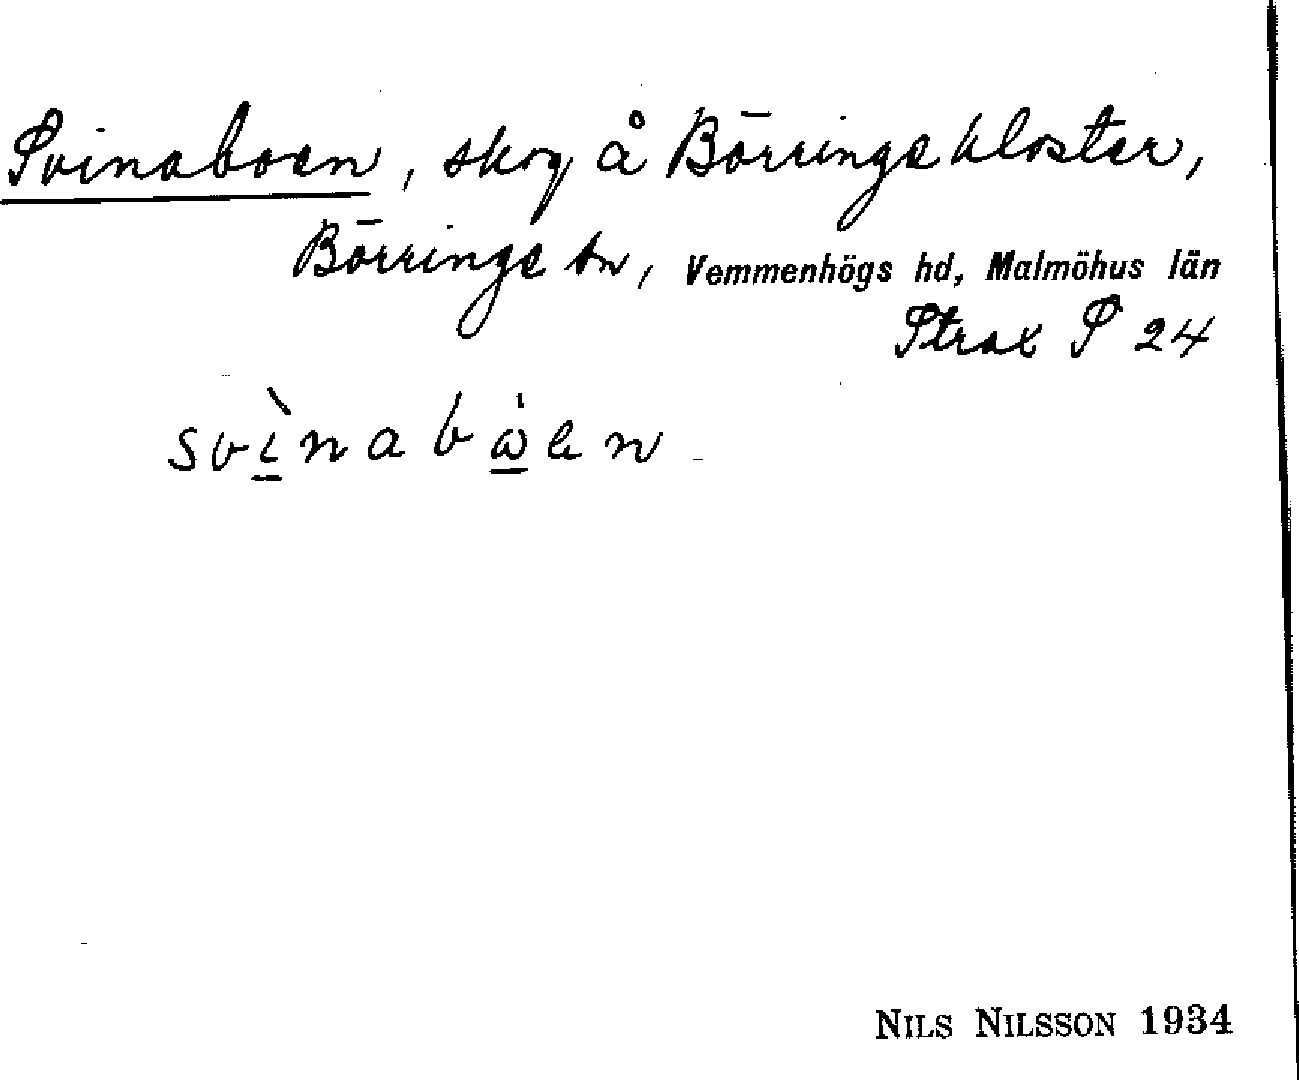 Svinaboen, skog å Börringekloster,
Börringe sn, Vemmenhögs hd, Malmöhus län
Strax S 24
svìnabωen
NILS NILSSON 1934